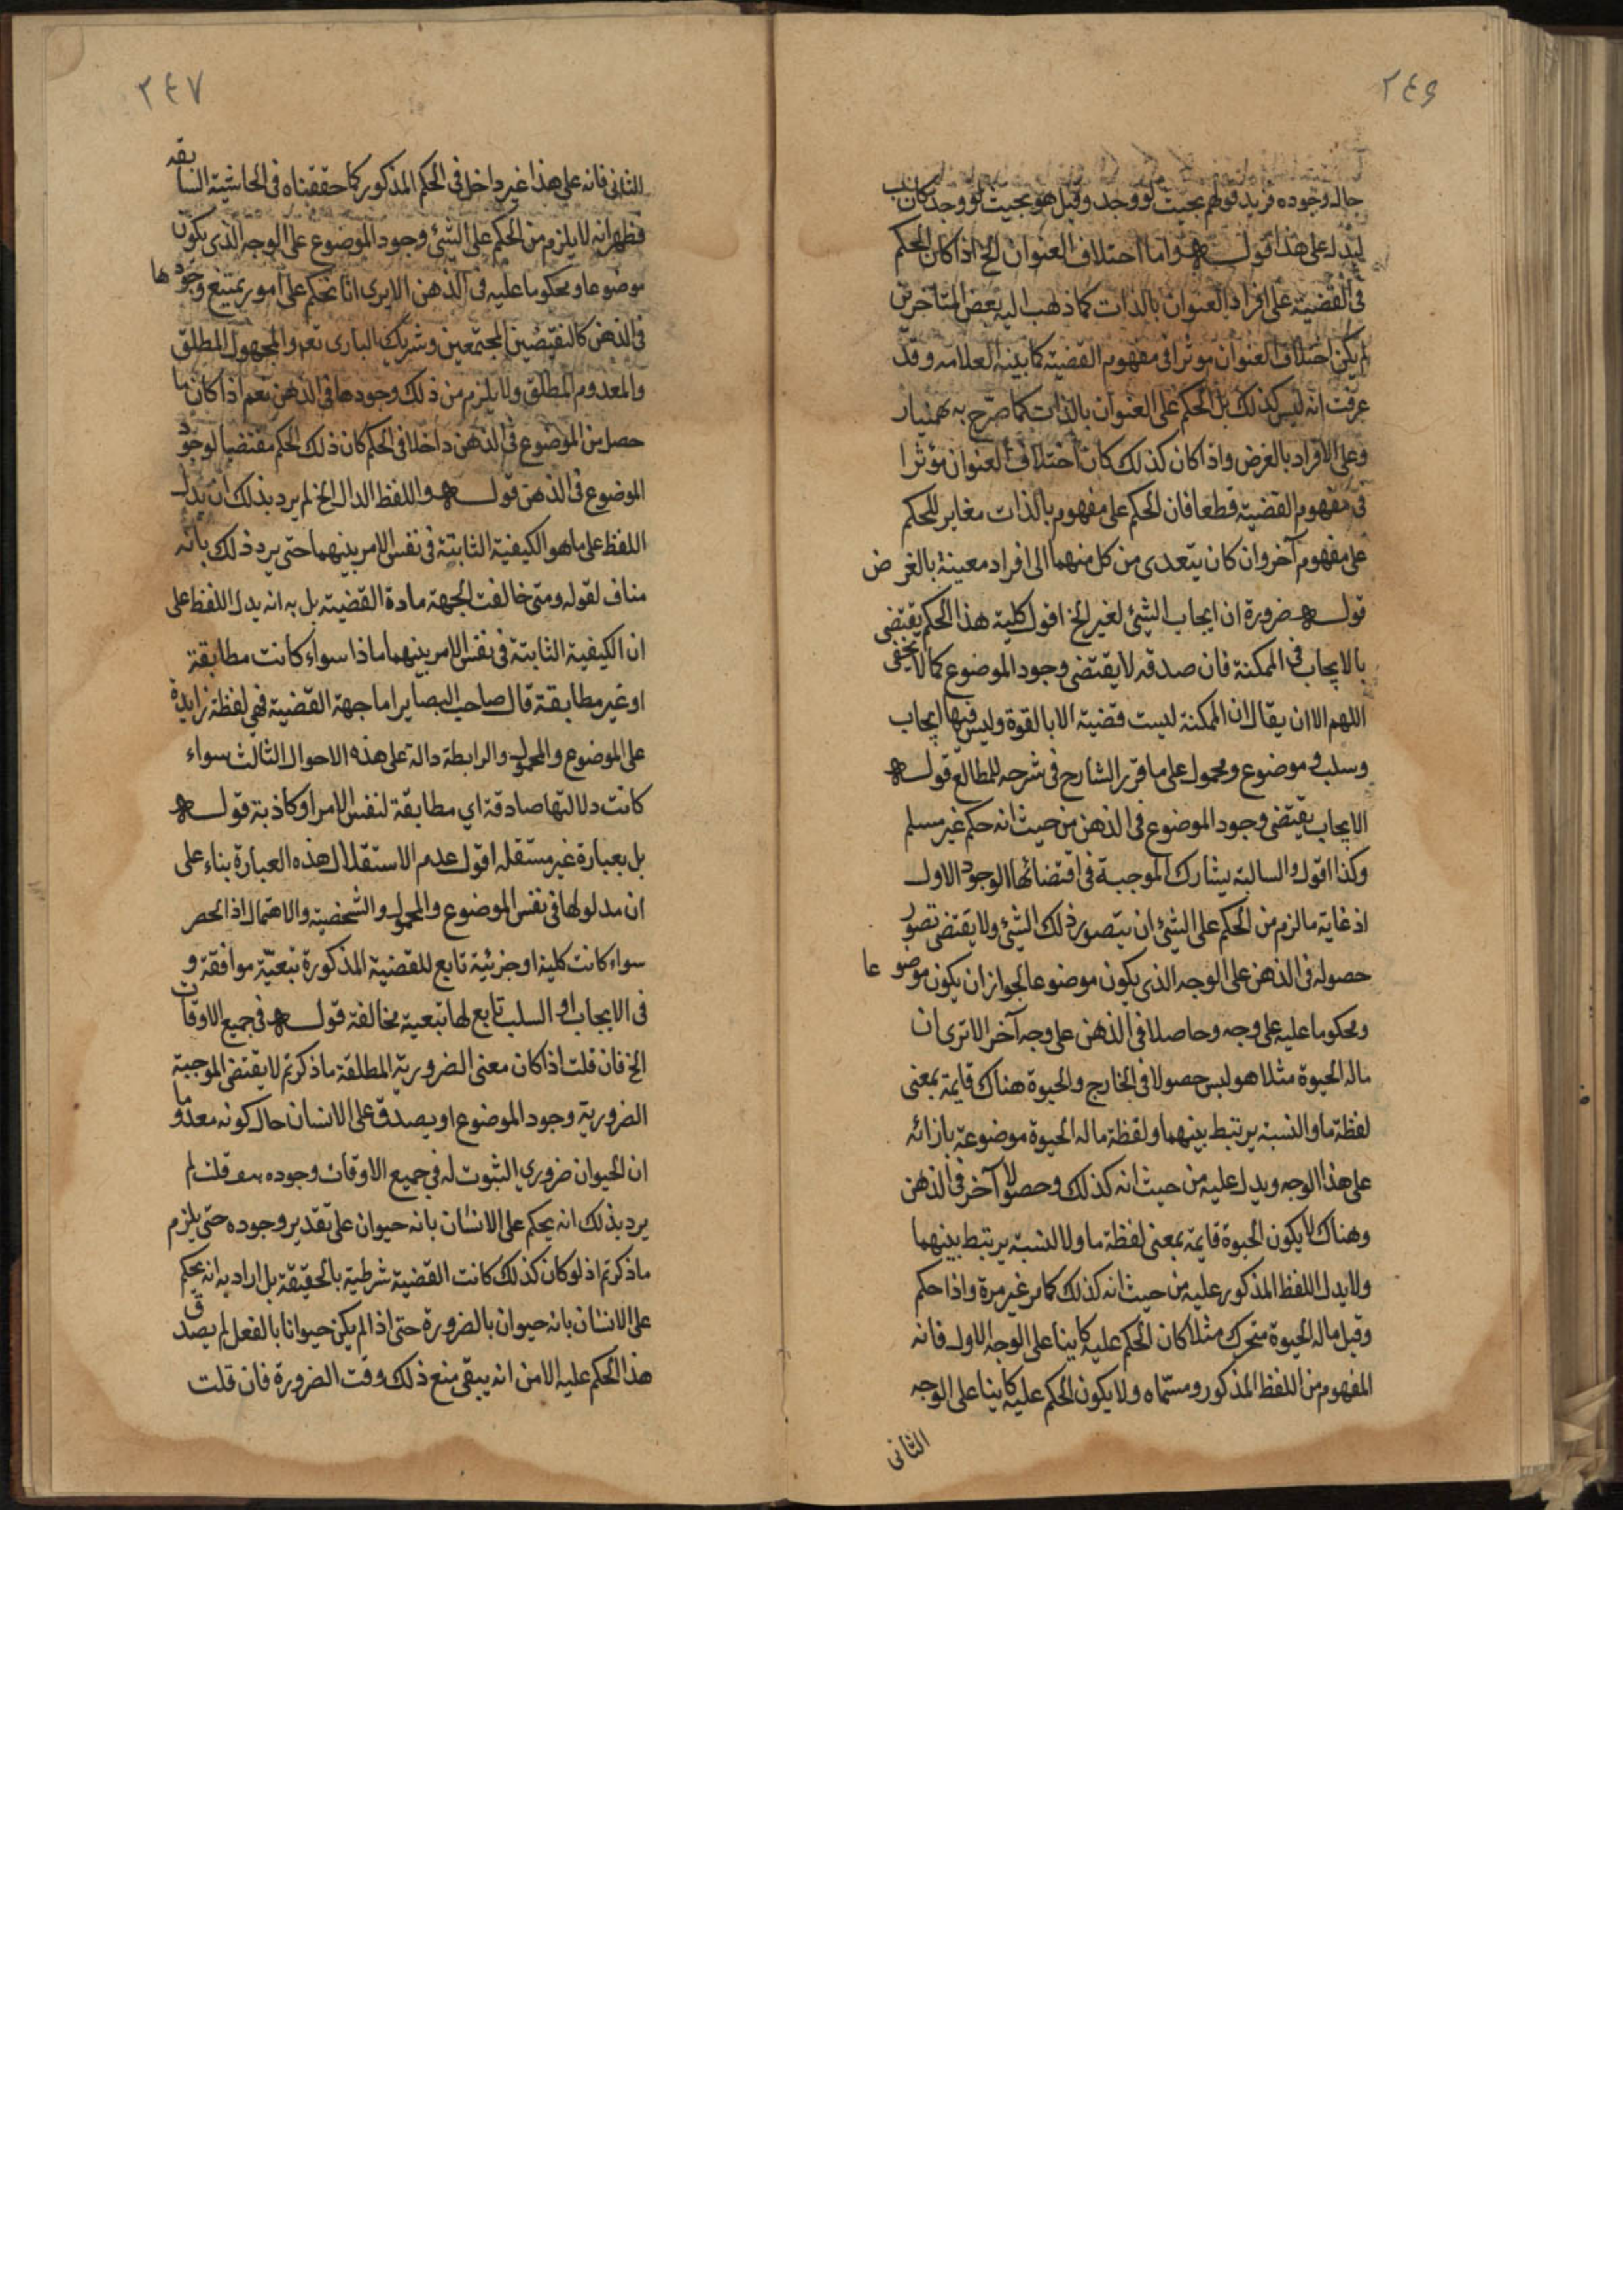 ٢٤٦
حال وجوده فزيد قولهم بحيث لو وجد وقيل هو بحيث لو وجد كان ب
ليدل على هذا قوله واما اختلاف العنوان الخ اذا كان الحكم
فى القضية على افراد العنوان بالذات كما ذهب اليه بعض المتاخرين
لم يكن اختلاف العنوان موثرا فى مفهوم القضية كما بينه العلامه وقد
عرفت انه ليس كذلك بل الحكم على العنوان بالذات كما صرّح به بهمنيار
وعلى الافراد بالعرض واذا كان كذلك كان اختلاف العنوان مؤثرا
فى مفهوم القضية قطعا فان الحكم على مفهوم بالذات مغاير للحكم
على مفهوم آخر وان كان يتعدى من كل منهما الى افراد معينة بالغرض
قوله ضرورة ان ايجاب الشئ لغير الخ اقول كلية هذا الحكم يقتضى
بالايجاب فى الممكنة فان صدقه لا يقتضى وجود الموضوع كما لا يخفى
اللهم الا ان يقال ان الممكنة ليست قضية الا بالقوة وليس فيها ايجاب
وسلب و موضوع ومحمول على ما قرر الشارح فى شرحه للمطالع قوله
الايجاب يقتضى وجود الموضوع فى الذهن من حيث انه حكم غير مسلم
وكذا اقول والسالبة يشارك الموجبة فى اقتضائها الوجود الاول
اذ غاية ما لزم من الحكم على الشئ ان يتصور ذلك الشئ ولا يقتضى تصور
حصوله فى الذهن على الوجه الذى يكون موضوعا لجواز ان يكون موضوعا
ومحكوما عليه على وجه وحاصلا فى الذهن على وجه آخر الا ترى ان
ماله الحيوة مثلا هو ليس حصولا فى الخارج والحيوة هناك قايمة بمعنى
لفظة ما والنسبة يرتبط بينهما ولفظة ماله الحيوة موضوعة بازائه
على هذا الوجه ويدل عليه من حيث انه كذلك وحصولا آخر فى الذهن
وهناك لا يكون الحيوة قايمة بمعنى لفظة ما ولا النسبة يرتبط بينهما
ولا يدل اللفظ المذكور عليه من حيث انه كذلك كما مر غير مرة واذا حكم
وقيل ماله الحيوة متحرك مثلا كان الحكم عليه كاينا على الوجه الاول فانه
المفهوم من اللفظ المذكور ومسمّاه ولا يكون الحكم عليه كاينا على الوجه
الثانى
٢٤٧
الثانى فانه على هذا غير داخل فى الحكم المذكور كما حققناه فى الحاشية السابقه
فظهر انه لا يلزم من الحكم على الشئ وجود الموضوع على الوجه الذى يكون
موضوعا ومحكوما عليه فى الذهن الا يرى انا نحكم على امور يمتنع وجودها
فى الذهن كالنقيضين المجتمعين وشريك البارى تعه والمجهول المطلق
والمعدوم المطلق ولا يلزم من ذلك وجودها فى الذهن نعم اذا كان ما
حصل من الموضوع فى الذهن داخلا فى الحكم كان ذلك الحكم مقتضيا لوجود
الموضوع فى الذهن قوله واللفظ الدال الخ لم يرد بذلك ان يدل
اللفظ على ما هو الكيفية الثابتة فى نفس الامر بينهما حتى يرد ذلك بانه
مناف لقوله ومتى خالفت الجهة مادة القضية بل به انه يدل اللفظ على
ان الكيفية الثابتة فى نفس الامر بينهما ماذا سواء كانت مطابقة
او غير مطابقة قال صاحب البصاير اما جهة القضية فهي لفظة زايدة
على الموضوع والمحمول والرابطة دالة على هذه الاحوال الثالث سواء
كانت دلالتها صادقة اي مطابقة لنفس الامر او كاذبة قوله
بل بعبارة غير مستقله اقول عدم الاستقلال هذه العبارة بناء على
ان مدلولها فى نفس الموضوع والمحمول والشخصية والاهمال اذ الحصر
سواء كانت كلية او جزئية تابع للقضية المذكورة تبعيّة موافقة و
فى الايجاب او السلب تابع لها تبعية مخالفة قوله فى جميع الاوقات
الخ فان قلت اذا كان معنى الضرورية المطلقة ما ذكرتم لا يقتضى الموجبة
الضرورية وجود الموضوع او يصدق على الانسان حال كونه معدوما
ان الحيوان ضروري الثبوت له في جميع الاوقات وجوده قلت لم
يرد بذلك انه يحكم على الانسان بانه حيوان على تقدير وجوده حتى يلزم
ما ذكرتم اذ لو كان كذلك كانت القضية شرطية بالحقيقة بل اراد به انه يحكم
على الانسان بانه حيوان بالضرورة حتى اذا لم يكن حيوانا بالفعل لم يصدق
هذا الحكم عليه الا من انه يبقى منع ذلك وقت الضرورة فان قلت